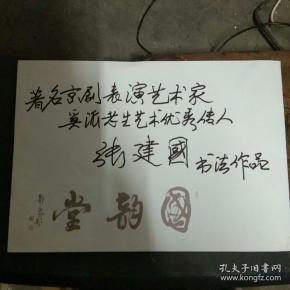 著名京剧表演艺术家
奚派老生艺术优秀传人
张建國 书法作品
國韵堂
孔夫子旧书网